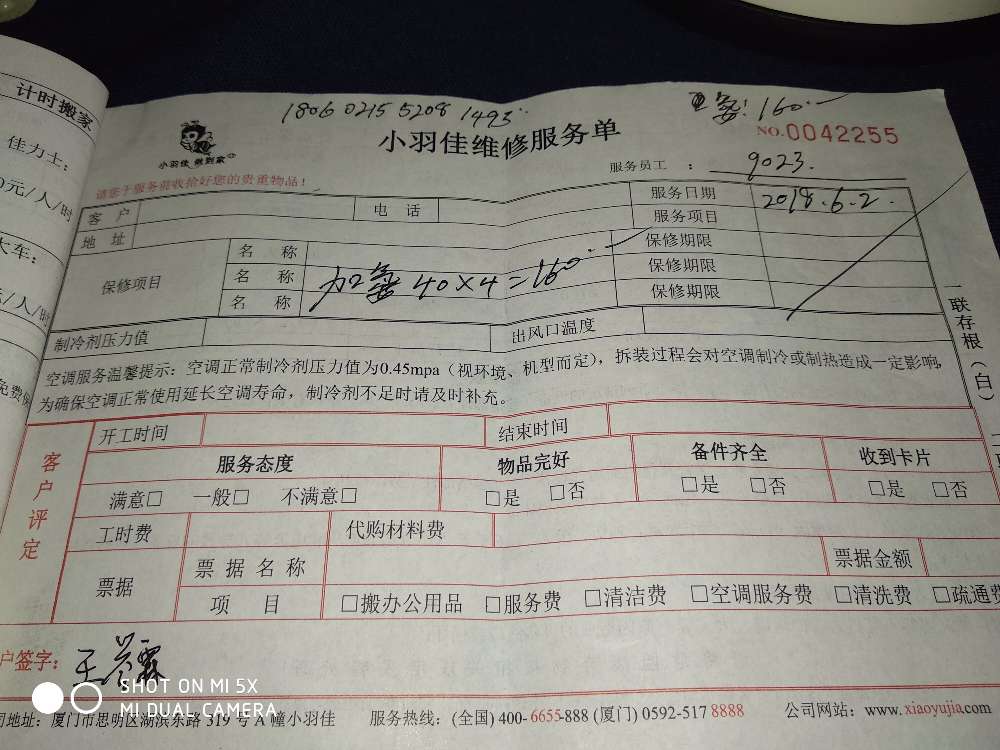 计时搬家
佳力士:
0元/人/时
大车:
元/人/时
1806 0215 5208 1493
160
小羽佳 做到家
小羽佳维修服务单
NO.0042255
服务员工 : 9023.
请您于服务前收拾好您的贵重物品!
客 户 电 话 服务日期 2018.6.2.
地 址 服务项目
保修项目 名 称 保修期限
名 称 加氟 40×4=160 保修期限
名 称 保修期限
制冷剂压力值 出风口温度
一联存根(白)
空调服务温馨提示:空调正常制冷剂压力值为0.45mpa(视环境、机型而定),拆装过程会对空调制冷或制热造成一定影响,
为确保空调正常使用延长空调寿命,制冷剂不足时请及时补充。
客户评定
开工时间 结束时间
服务态度 物品完好 备件齐全 收到卡片
满意□ 一般□ 不满意□ □是 □否 □是 □否 □是 □否
工时费 代购材料费
票据 票据名称 票据金额
项 目 □搬办公用品 □服务费 □清洁费 □空调服务费 □清洗费 □疏通费
户签字:
SHOT ON MI 5X
MI DUAL CAMERA
司地址:厦门市思明区湖滨东路 319 号 A 幢小羽佳 服务热线:(全国) 400-6655-888 (厦门) 0592-517 8888 公司网站:www.xiaoyujia.com